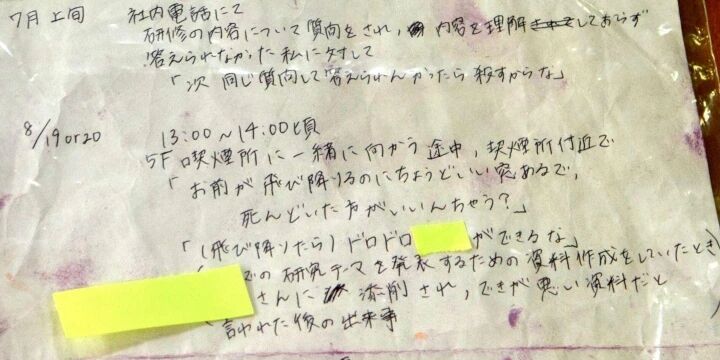 7月上旬 社内電話にて
研修の内容について質向をされ、内容を理解しておらず
答えられなかった私に対して
「次 同じ質向して答えられんかったら殺すからな」
8/19 or 20 13:00～14:00頃
5F喫煙所に一緒に向かう途中、喫煙所付近で
「お前が飛び降りるのにちょうどいい窓あるで、
死んどいた方がいいんちゃう?」
「(飛び降りたら)ドロドロ ができるな」
での研究テーマを発表するための資料作成をしていたとき
さんに 添削され、できが悪い資料だと
言われた後の出来事